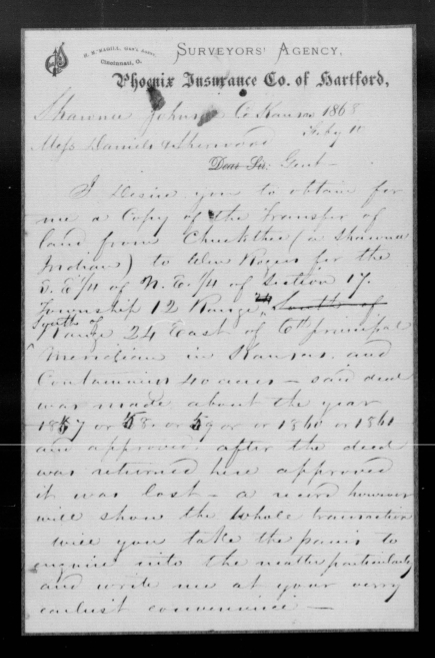 H. M. MAGILL, Gen'l Agent,
Cincinnati, O.
SURVEYORS' AGENCY,
Phoenix Insurance Co. of Hartford,
Shawnee Johnson Co Kansas 1868
Feby 11
Mess Daniels & Sherwood
Dear Sir Gent -
I desire you to obtain for
me a Copy of the Transfer of
land from (a Shawnee
Indian) to for the
S. E./4 of N. E./4 of Section 17.
Township 12 Range 24 South of
South of
Range 24 East of 6th principal
Meridian in Kansas. and
Containing 40 acres - said deed
was made about the year
1857 or 58 or 59 or or 1860 or 1861
and approved. after the deed
was returned here approved
it was lost - a record however
will show the whole transaction
will you take the pains to
enquire into the matter particularly
and write me at your very
earliest convenience -